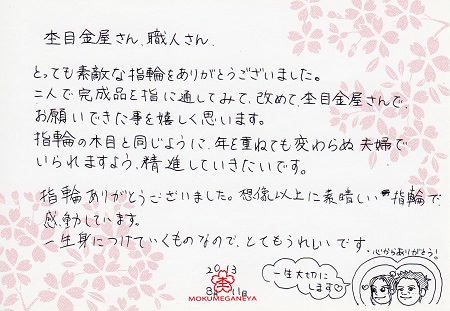 杢目金屋さん、職人さん、
とっても素敵な指輪をありがとうございました。
二人で完成品を指に通してみて、改めて、杢目金屋さんで、
お願いできた事を嬉しく思います。
指輪の木目と同じように、年を重ねても変わらぬ夫婦で
いられますよう、精進していきたいです。
指輪ありがとうございました。想像以上に素晴しい指輪で、
感動しています。
一生身につけていくものなので、とてもうれしいです。
・心からありがとう!
一生大切に
します♡
2013
3 11日
MOKUMEGANEYA